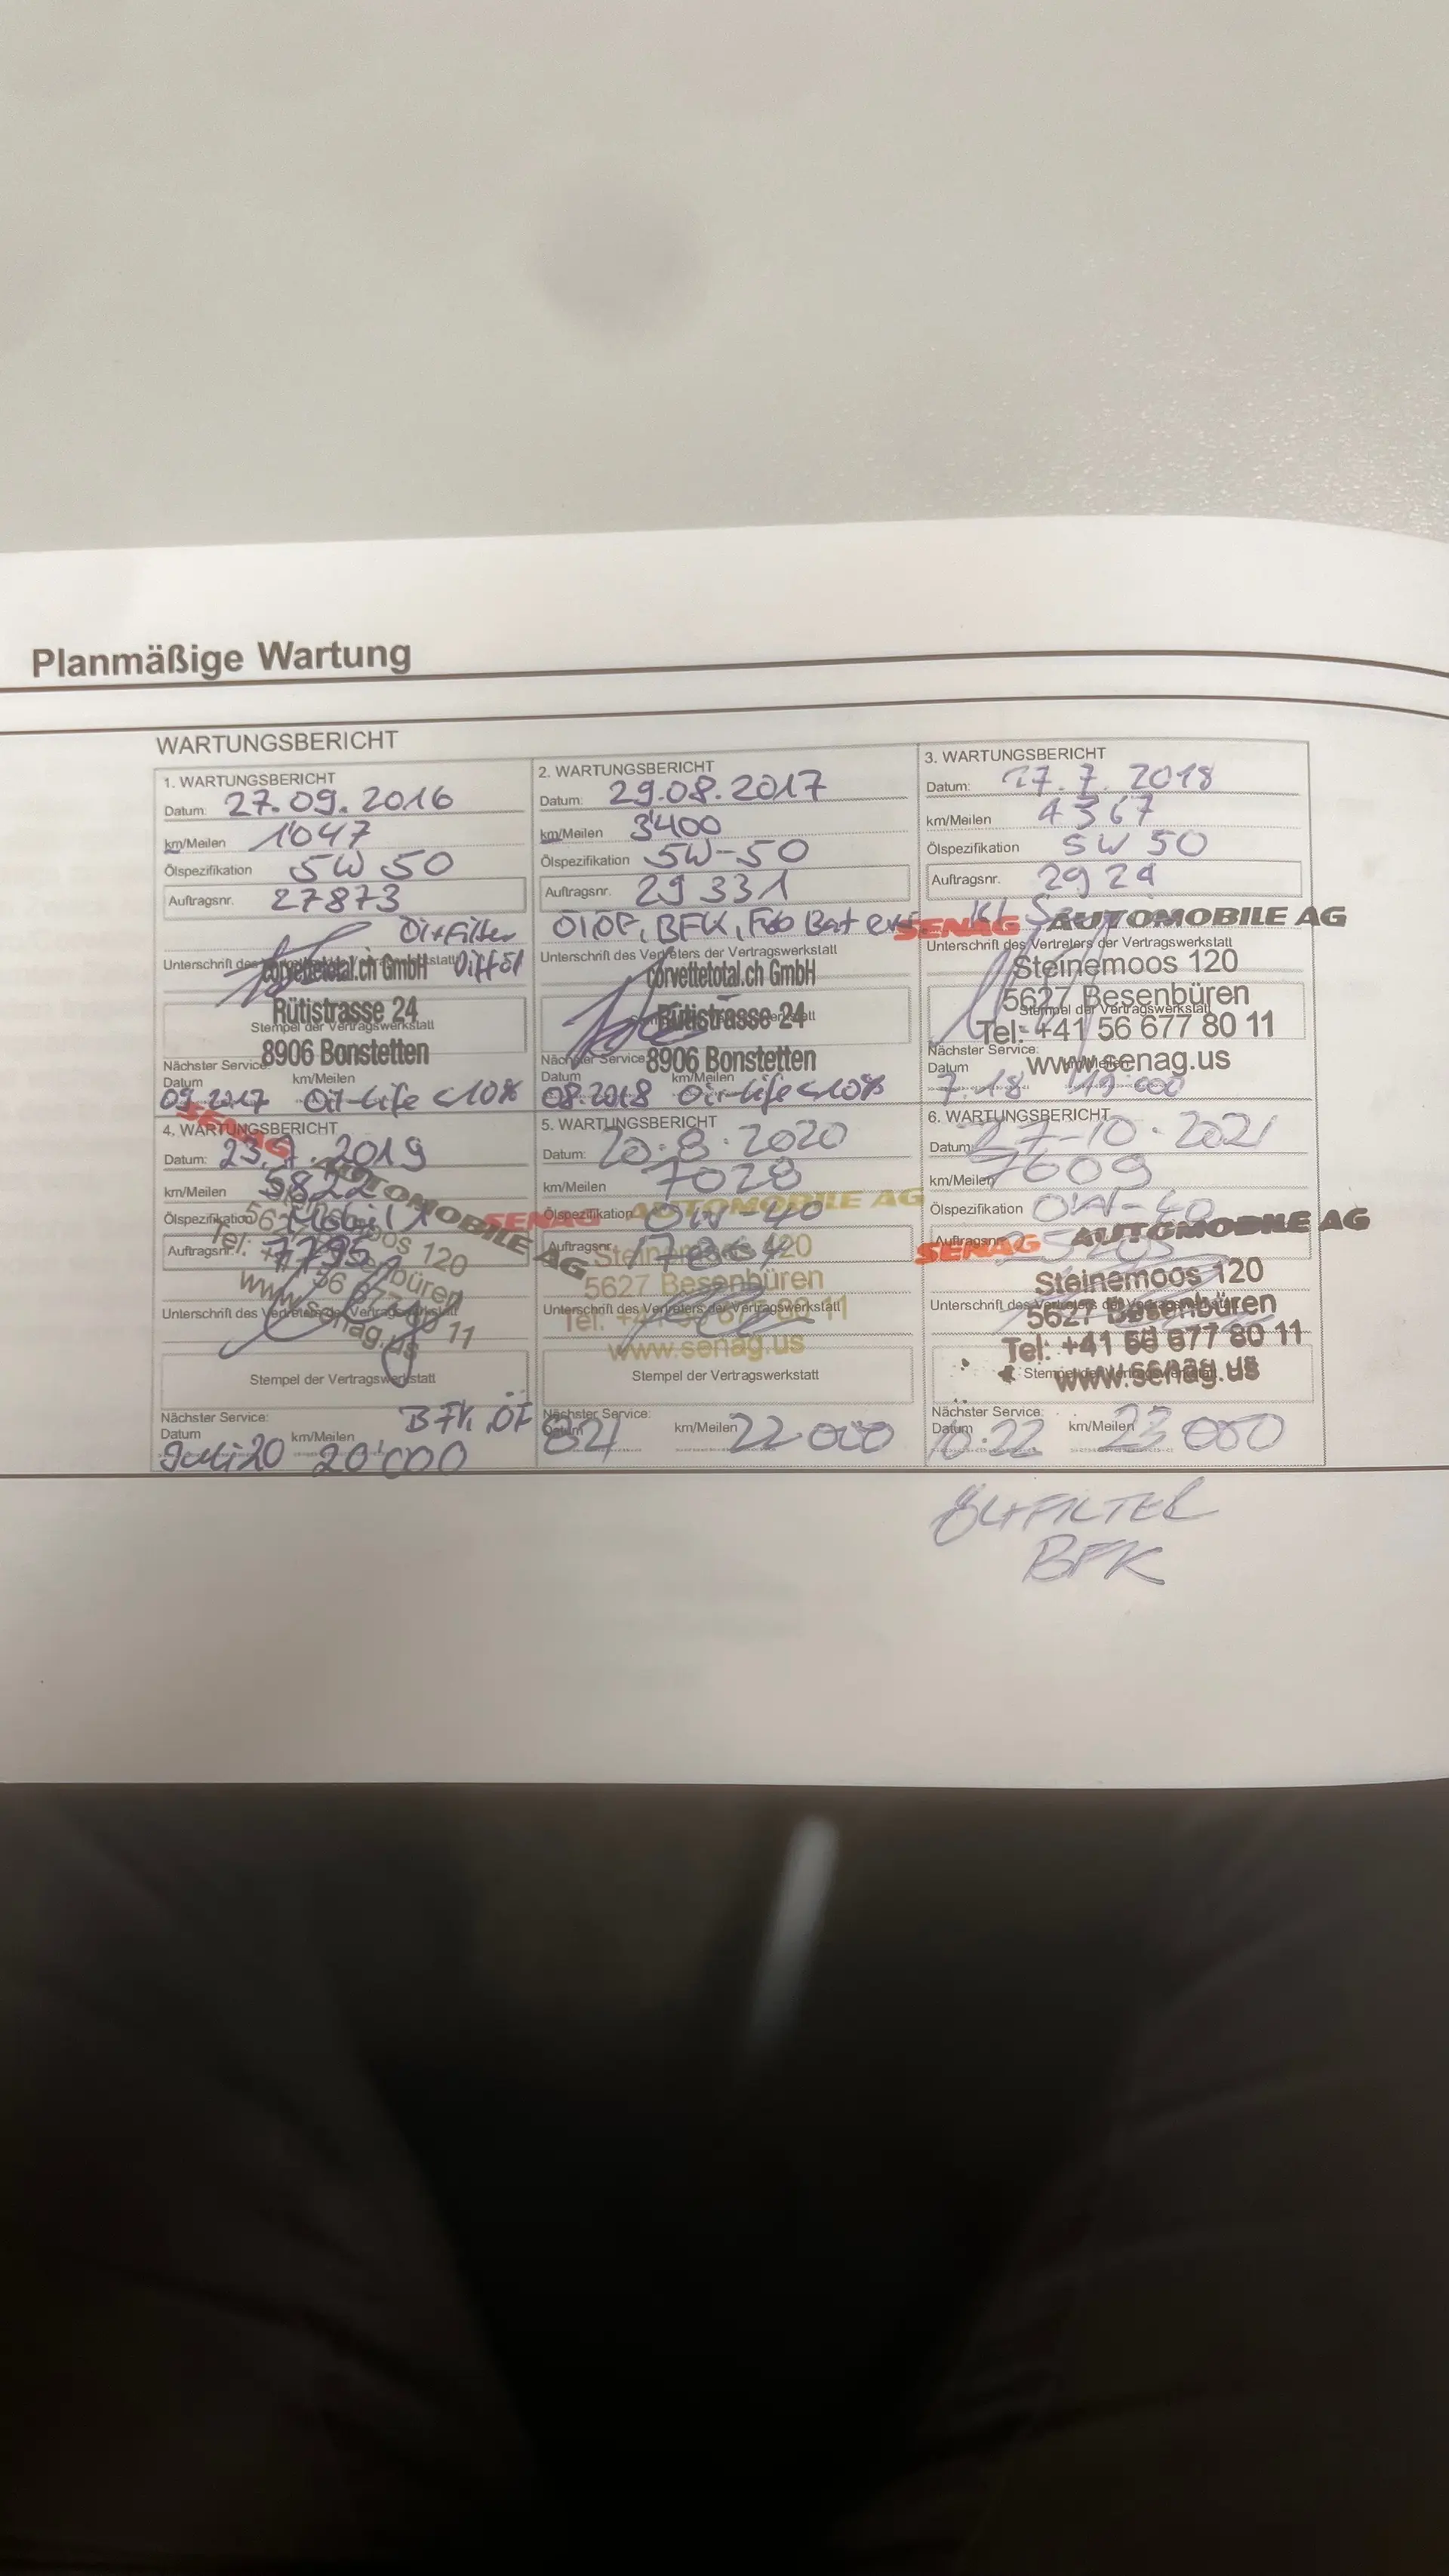 Planmäßige Wartung
WARTUNGSBERICHT
1. WARTUNGSBERICHT
Datum: 27.09.2016
km/Meilen 1'047
Ölspezifikation 5W 50
Auftragsnr. 27873
Öl+Filter
Unterschrift des Vertragswerkstatt Diff Öl
corvettetotal.ch GmbH
Rütistrasse 24
Stempel der Vertragswerkstatt
8906 Bonstetten
Nächster Service:
Datum km/Meilen
09.2017 Oil-Life <10%
2. WARTUNGSBERICHT
Datum: 29.08.2017
km/Meilen 3'400
Ölspezifikation 5W-50
Auftragsnr. 29331
BFK, Fob Bat
Unterschrift des Vertreters der Vertragswerkstatt
corvettetotal.ch GmbH
Rütistrasse 24
8906 Bonstetten
Nächster Service:
Datum km/Meilen
08.2018 Oil-Life <10%
3. WARTUNGSBERICHT
Datum: 27.7.2018
km/Meilen 4367
Ölspezifikation 5W 50
Auftragsnr. 2924
SENAG AUTOMOBILE AG
Unterschrift des Vertreters der Vertragswerkstatt
Steinemoos 120
5627 Besenbüren
Stempel der Vertragswerkstatt
Tel: +41 56 677 80 11
www.senag.us
Nächster Service:
Datum km/Meilen
7.18
4. WARTUNGSBERICHT
SENAG AUTOMOBILE AG
Datum: 23.7.2019
km/Meilen 5822
Ölspezifikation Mobil 1
Auftragsnr. 7795
Unterschrift des Vertreters der Vertragswerkstatt
www.senag.us
Stempel der Vertragswerkstatt
BFK ÖF
Nächster Service:
Datum km/Meilen
Juli 20 20'000
5. WARTUNGSBERICHT
Datum: 20.8.2020
km/Meilen 7028
SENAG AUTOMOBILE AG
Ölspezifikation 0W-40
Auftragsnr.
Steinemoos 120
5627 Besenbüren
Unterschrift des Vertreters der Vertragswerkstatt
Tel: +41 56 677 80 11
www.senag.us
Stempel der Vertragswerkstatt
Nächster Service:
Datum km/Meilen 22000
6. WARTUNGSBERICHT
Datum: 27-10.2021
km/Meilen 7609
Ölspezifikation 0W-40
SENAG AUTOMOBILE AG
Auftragsnr.
Steinemoos 120
Unterschrift des Vertreters der Vertragswerkstatt
5627 Besenbüren
Tel: +41 56 677 80 11
www.senag.us
Nächster Service:
Datum 10.22 km/Meilen 23000
ÖL+FILTER
BFK